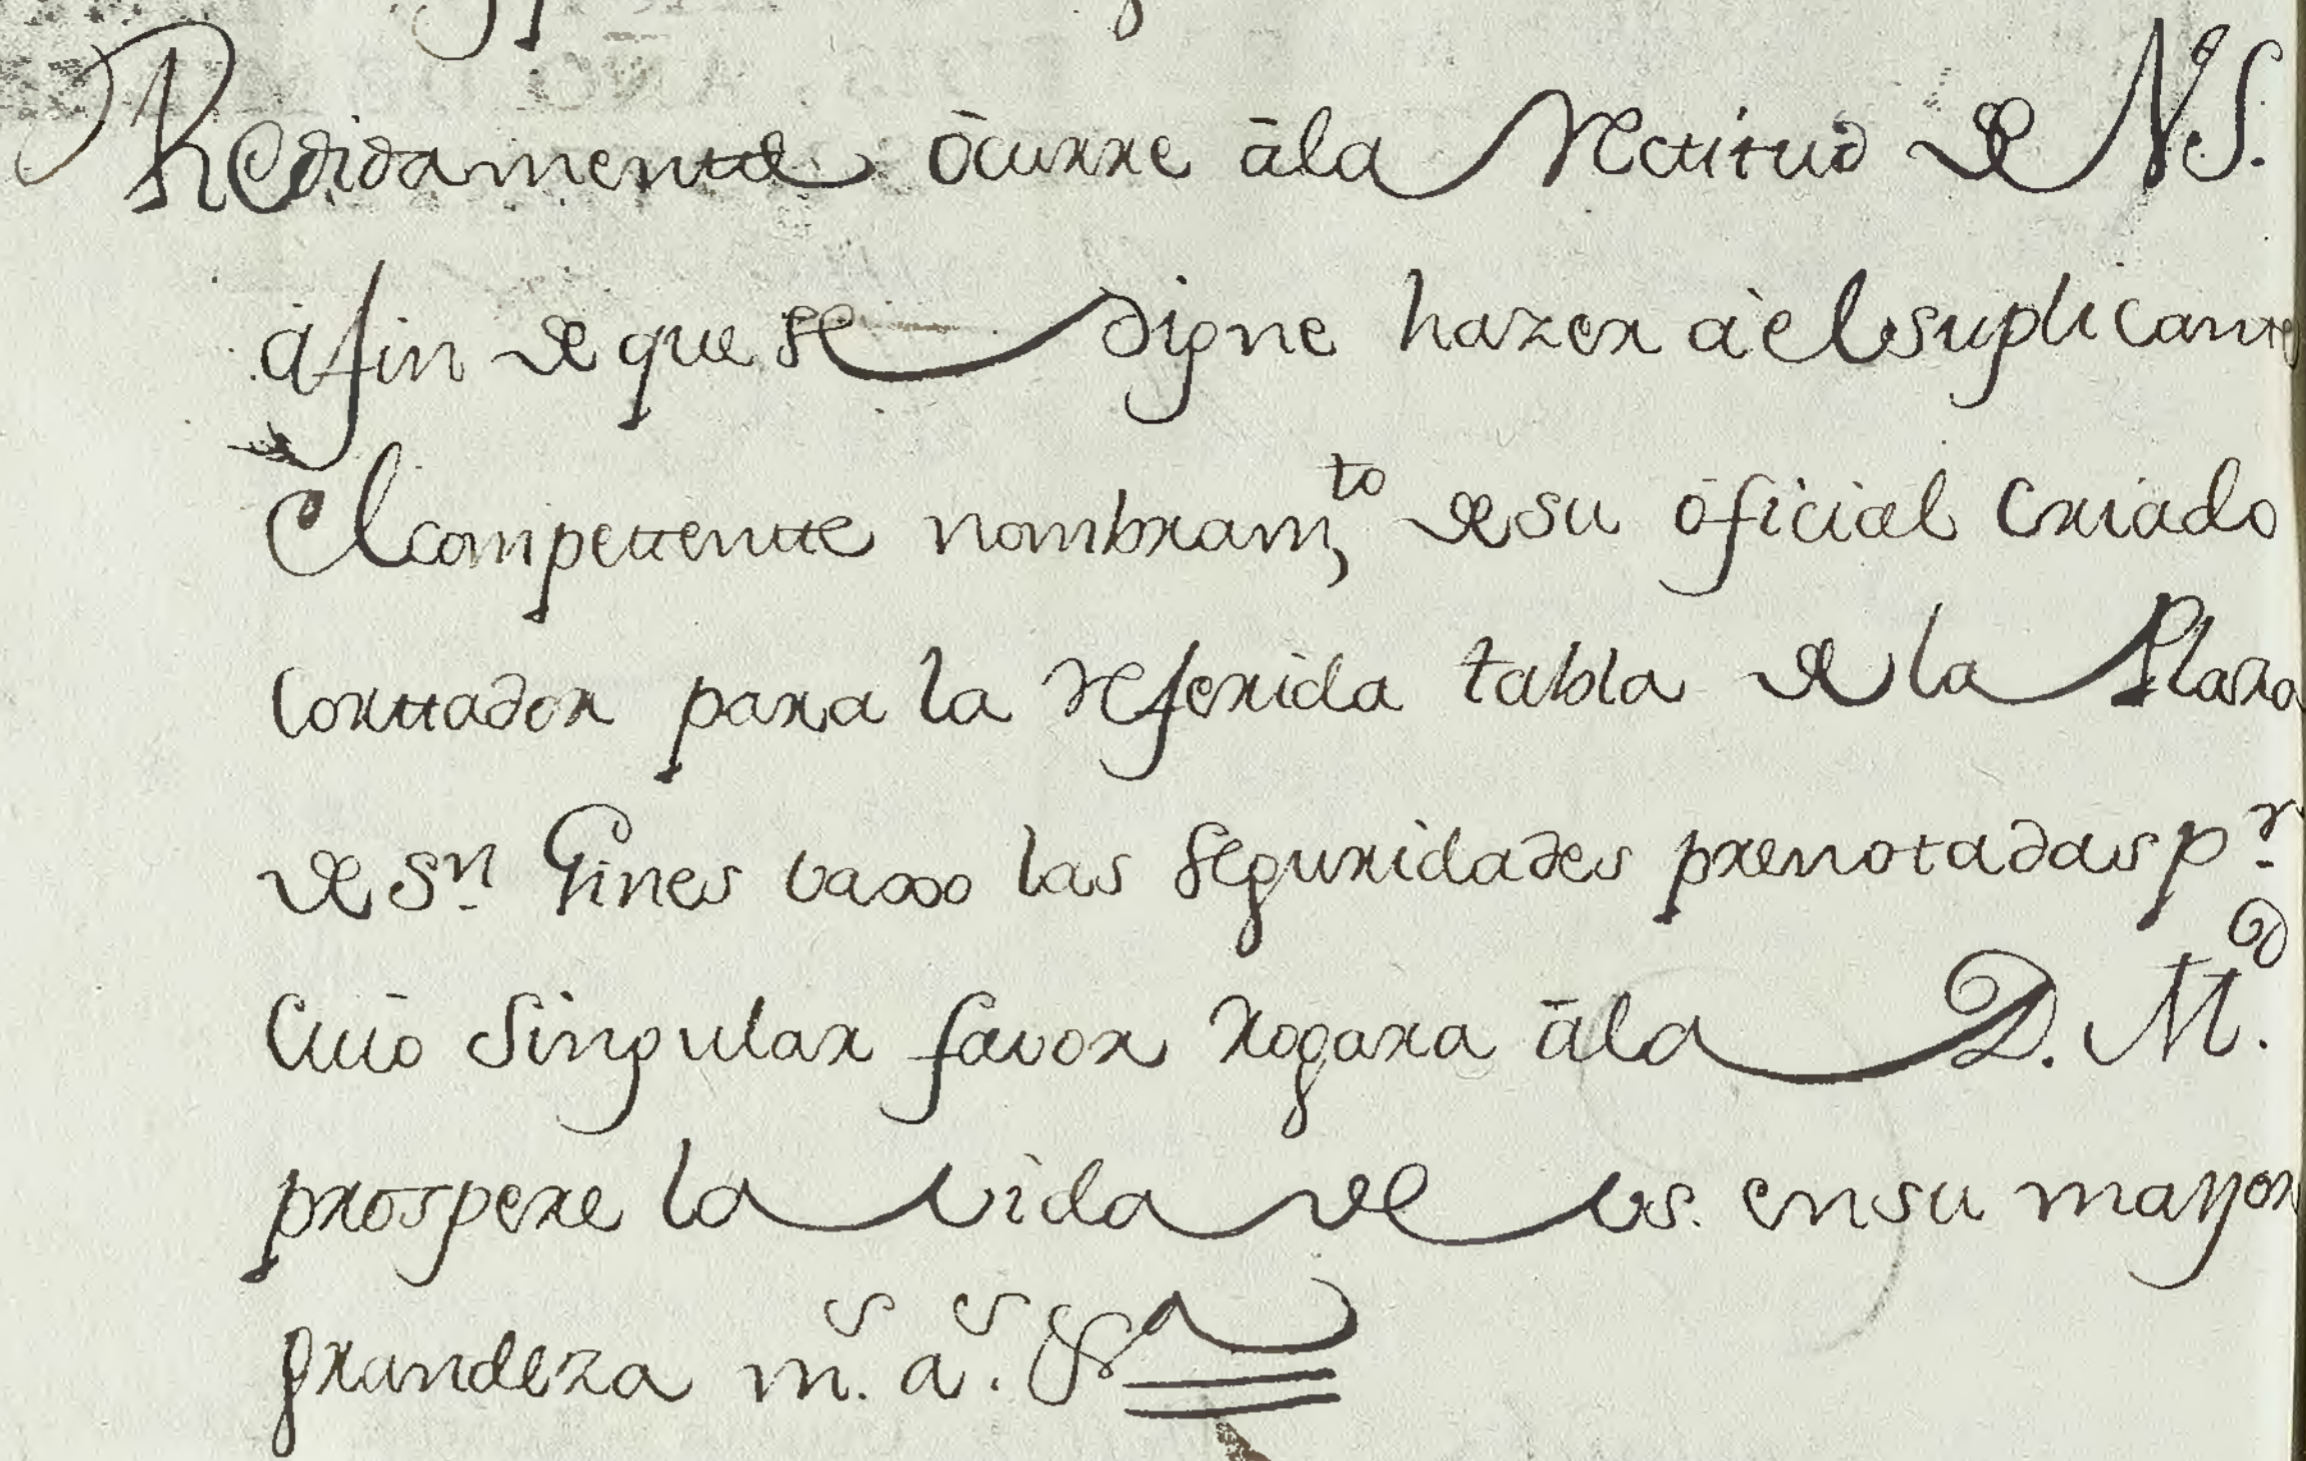 Redidamente ocurre àla rectitud de V.S.
afin de que se digne hazer à el suplicante
El compettentte nombram,to de su oficial criado
Corttador para la referida tabla de la Plaza
de Sn. Gines vaxo las seguridades prenotadas pr.
Cuio Singular favor rogara àla D. Md.
prospere la vida de vs. en su mayor
grandeza ms. as. &a